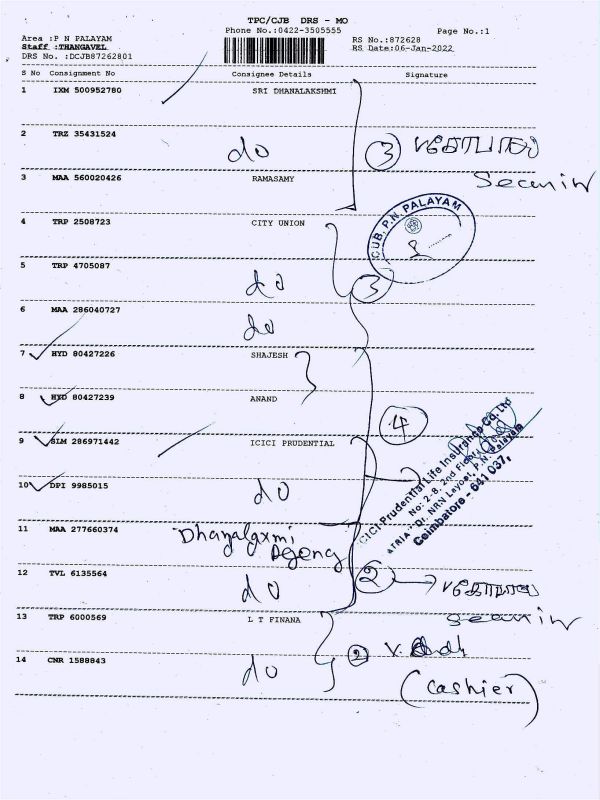 TPC/CJB DRS - MO
Phone No.:0422-3505555
Page No.:1
Area :P N PALAYAM
RS No.:872628
Staff :THANGAVEL
RS Date:06-Jan-2022
DRS No. :DCJB87262801
S No Consignment No Consignee Details Signature
1 IXM 500952780 SRI DHANALAKSHMI
2 TRZ 35431524 do
3 கோபால்
3 MAA 560020426 RAMASAMY
4 TRP 2508723 CITY UNION
CUB, P.N. PALAYAM
5 TRP 4705087 do
3
6 MAA 286040727 do
7 HYD 80427226 SHAJESH
8 HYD 80427239 ANAND
4
9 SLM 286971442 ICICI PRUDENTIAL
10 DPI 9985015 do
ICICI Prudential Life Insurance Co. Ltd
No: 2-8, 2nd Floor
"ATRIA" Dr. NRN Layout, P.N. Palayam
Coimbatore - 641 037,
11 MAA 277660374 Dhanalaxmi Agency
12 TVL 6135564 do
2
13 TRP 6000569 L T FINANA
2 V.
14 CNR 1588843 do
(cashier)